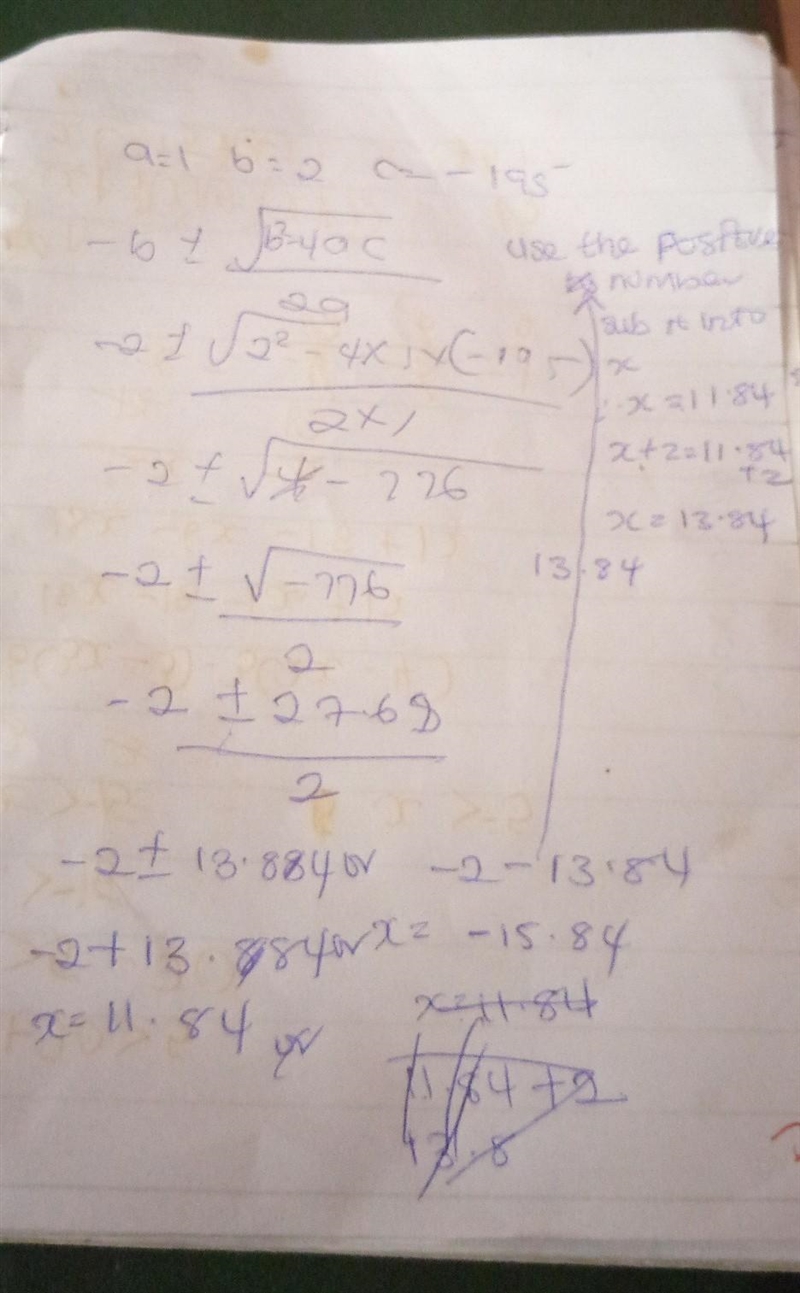 a=1 b=2 c=-195
-b ± √b²-4ac
2a
-2 ± √2² - 4×1×(-195)
2×1
-2 ± √4 - 776
-2 ± √-776
2
-2 ± 27.68
2
-2 ± 13.884 or -2 - 13.84
-2 + 13.884 or x = -15.84
x = 11.84 or
x = 11.84
11.84 + 2
13.8
use the positive
number
sub it into
x
∴ x = 11.84
x + 2 = 11.84
+2
x = 13.84
13.84